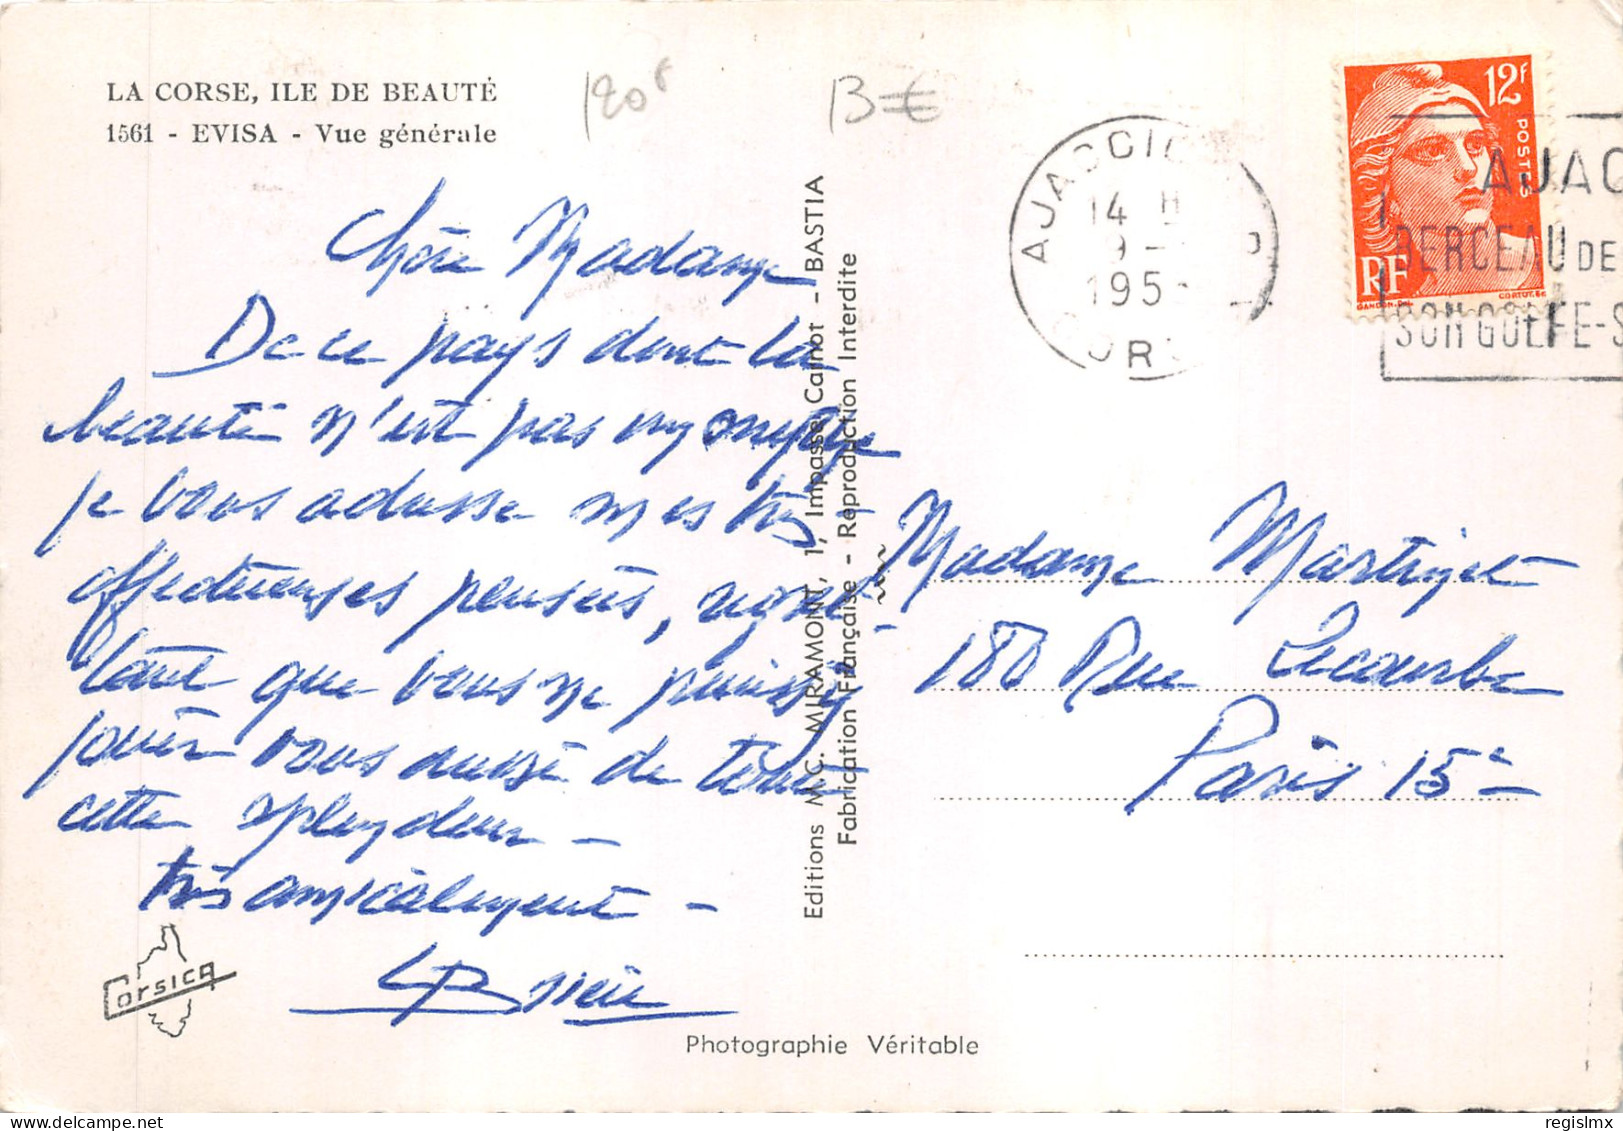 LA CORSE, ILE DE BEAUTÉ
1561 - EVISA - Vue générale
120f
13 €
Chère Madame
De ce pays dont la
beauté n'est pas un mythe
je vous adresse mes très
affectueuses pensées, regret-
tant que vous ne puissiez
jouir vous aussi de toute
cette splendeur -
très amicalement -
Corsica
Editions M.C. MIRAMONT, 1, Impasse Carnot - BASTIA
Fabrication Française - Reproduction Interdite
AJACCIO
14 H
9 -
195
COR
12F
POSTES
RF
GANDON.DEL
CORTOT.SC
AJAC
BERCEAU DE
SON GOLFE-S
Madame Martinet
180 Rue Lecourbe
Paris 15e -
Photographie Véritable
delcampe.net
regislmx